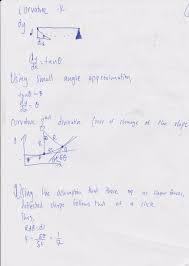 Curvature - K
dy
dx
dy/dx = tanθ
Using small angle approximation,
tanθ = θ
dy/dx = θ
curvature just division (rate of change of the slope
R
R
δθ
Using the assumption that there are no shear forces,
deflected shape follows that of a circle.
Thus,
K = δθ/δs = 1/R